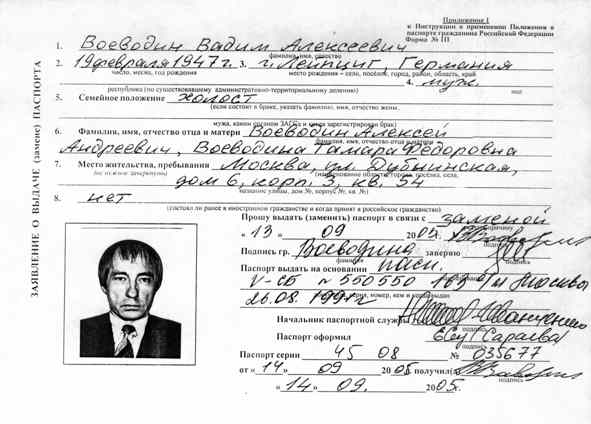 Приложение 1
к Инструкции о применении Положения о
паспорте гражданина Российской Федерации
Форма № 1П
ЗАЯВЛЕНИЕ О ВЫДАЧЕ (замене) ПАСПОРТА
1. Воеводин Вадим Алексеевич
фамилия, имя, отчество
2. 19 февраля 1947 г. 3. г. Лейпциг, Германия
число, месяц, год рождения место рождения – село, поселок, город, район, область, край
4. муж.
республика (по существовавшему административно-территориальному делению) пол
5. Семейное положение холост
(если состоит в браке, указать фамилию, имя, отчество жены,
мужа, каким органом ЗАГСа и когда зарегистрирован брак)
6. Фамилия, имя, отчество отца и матери Воеводин Алексей
фамилия, имя, отчество отца и матери
Андреевич, Воеводина Тамара Федоровна
7. Место жительства, пребывания Москва, ул. Дубнинская,
(ненужное зачеркнуть)
дом 6, корп. 3, кв. 54
название улицы, дом №, корпус №, кв. №)
8. нет
(состоял ли ранее в иностранном гражданстве и когда принят в российское гражданство)
Прошу выдать (заменить) паспорт в связи с заменой
« 13 » 09 2005г.
подпись
Подпись гр. Воеводина заверяю
фамилия подпись
Паспорт выдать на основании пасп.
V-СБ № 550550 163 о/м Москвы
серия, номер, кем и когда выдан
26.08.
Начальник паспортной службы
подпись
Паспорт оформил
подпись
Паспорт серии 45 08 № 035677
от « 14 » 09 2005 получил(а)
подпись
« 14 » 09. 2005г.